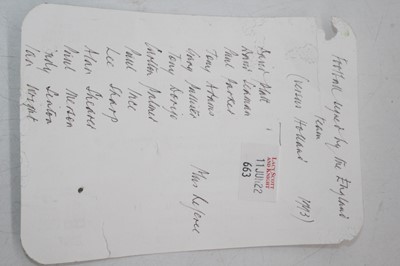 Football signed by the England
Team
(versus Holland 1993)
David Platt
David Seaman
Paul Parker
Tony Adams
Gary Pallister
Tony Dorigo
Carlton Palmer
Paul Ince
Lee Sharp
Alan Shearer
Paul Merson
Andy Sinton
Ian Wright
Plus Referee
LACY SCOTT
AND KNIGHT
11 JUN 22
663